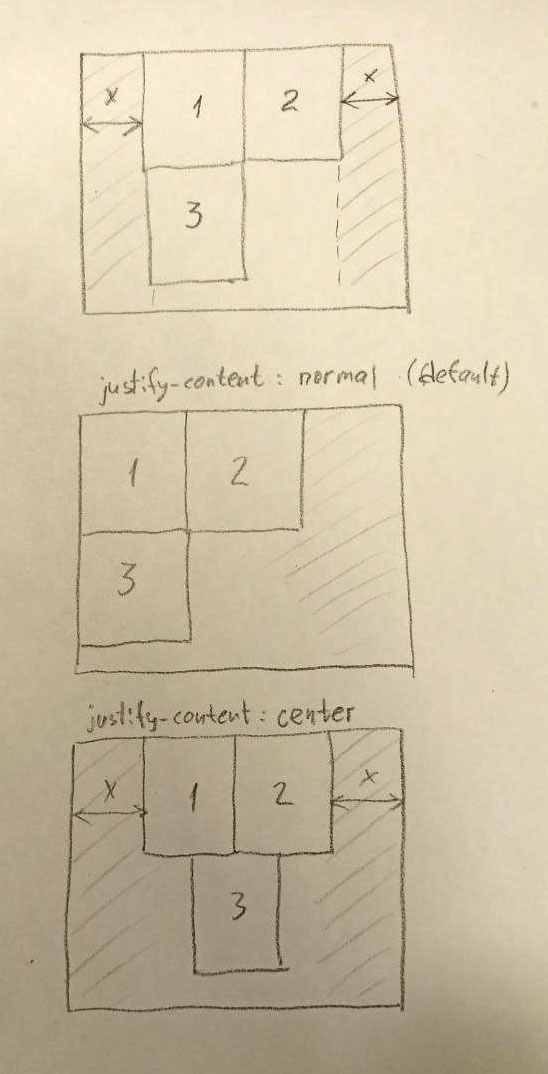 x 1 2 x
3
justify-content : normal (default)
1 2
3
justify-content : center
x 1 2 x
3